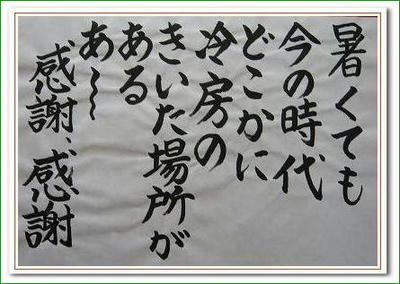 暑くても
今の時代
どこかに
冷房の
きいた場所が
ある
あ〜
感謝、感謝